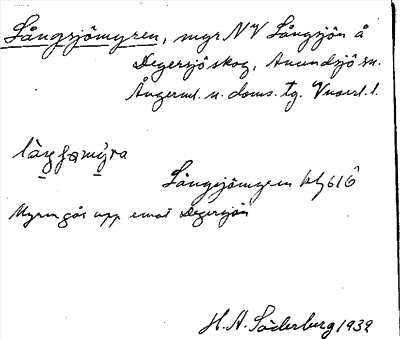 Långsjömyren, myr NV Långsjön å
Degersjö skog, Anundsjö sn.
Ångerml. n. doms. tg. Vnorrl. l.
Långsjömyren blj 616
Myren går upp emot Degersjön
H. A. Söderberg 1932